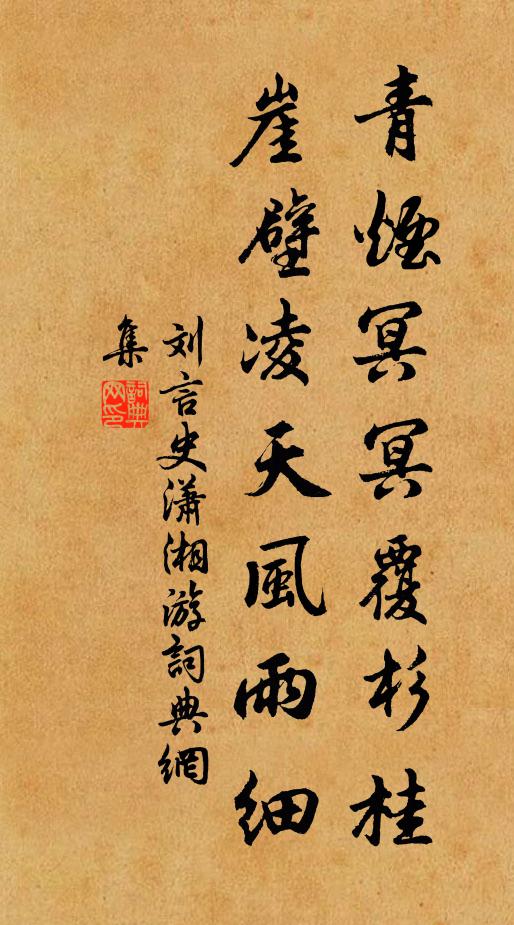 青煙冥冥覆杉桂
崖壁凌天風雨細
刘言史瀟湘游詞典網
集
詞典
网印